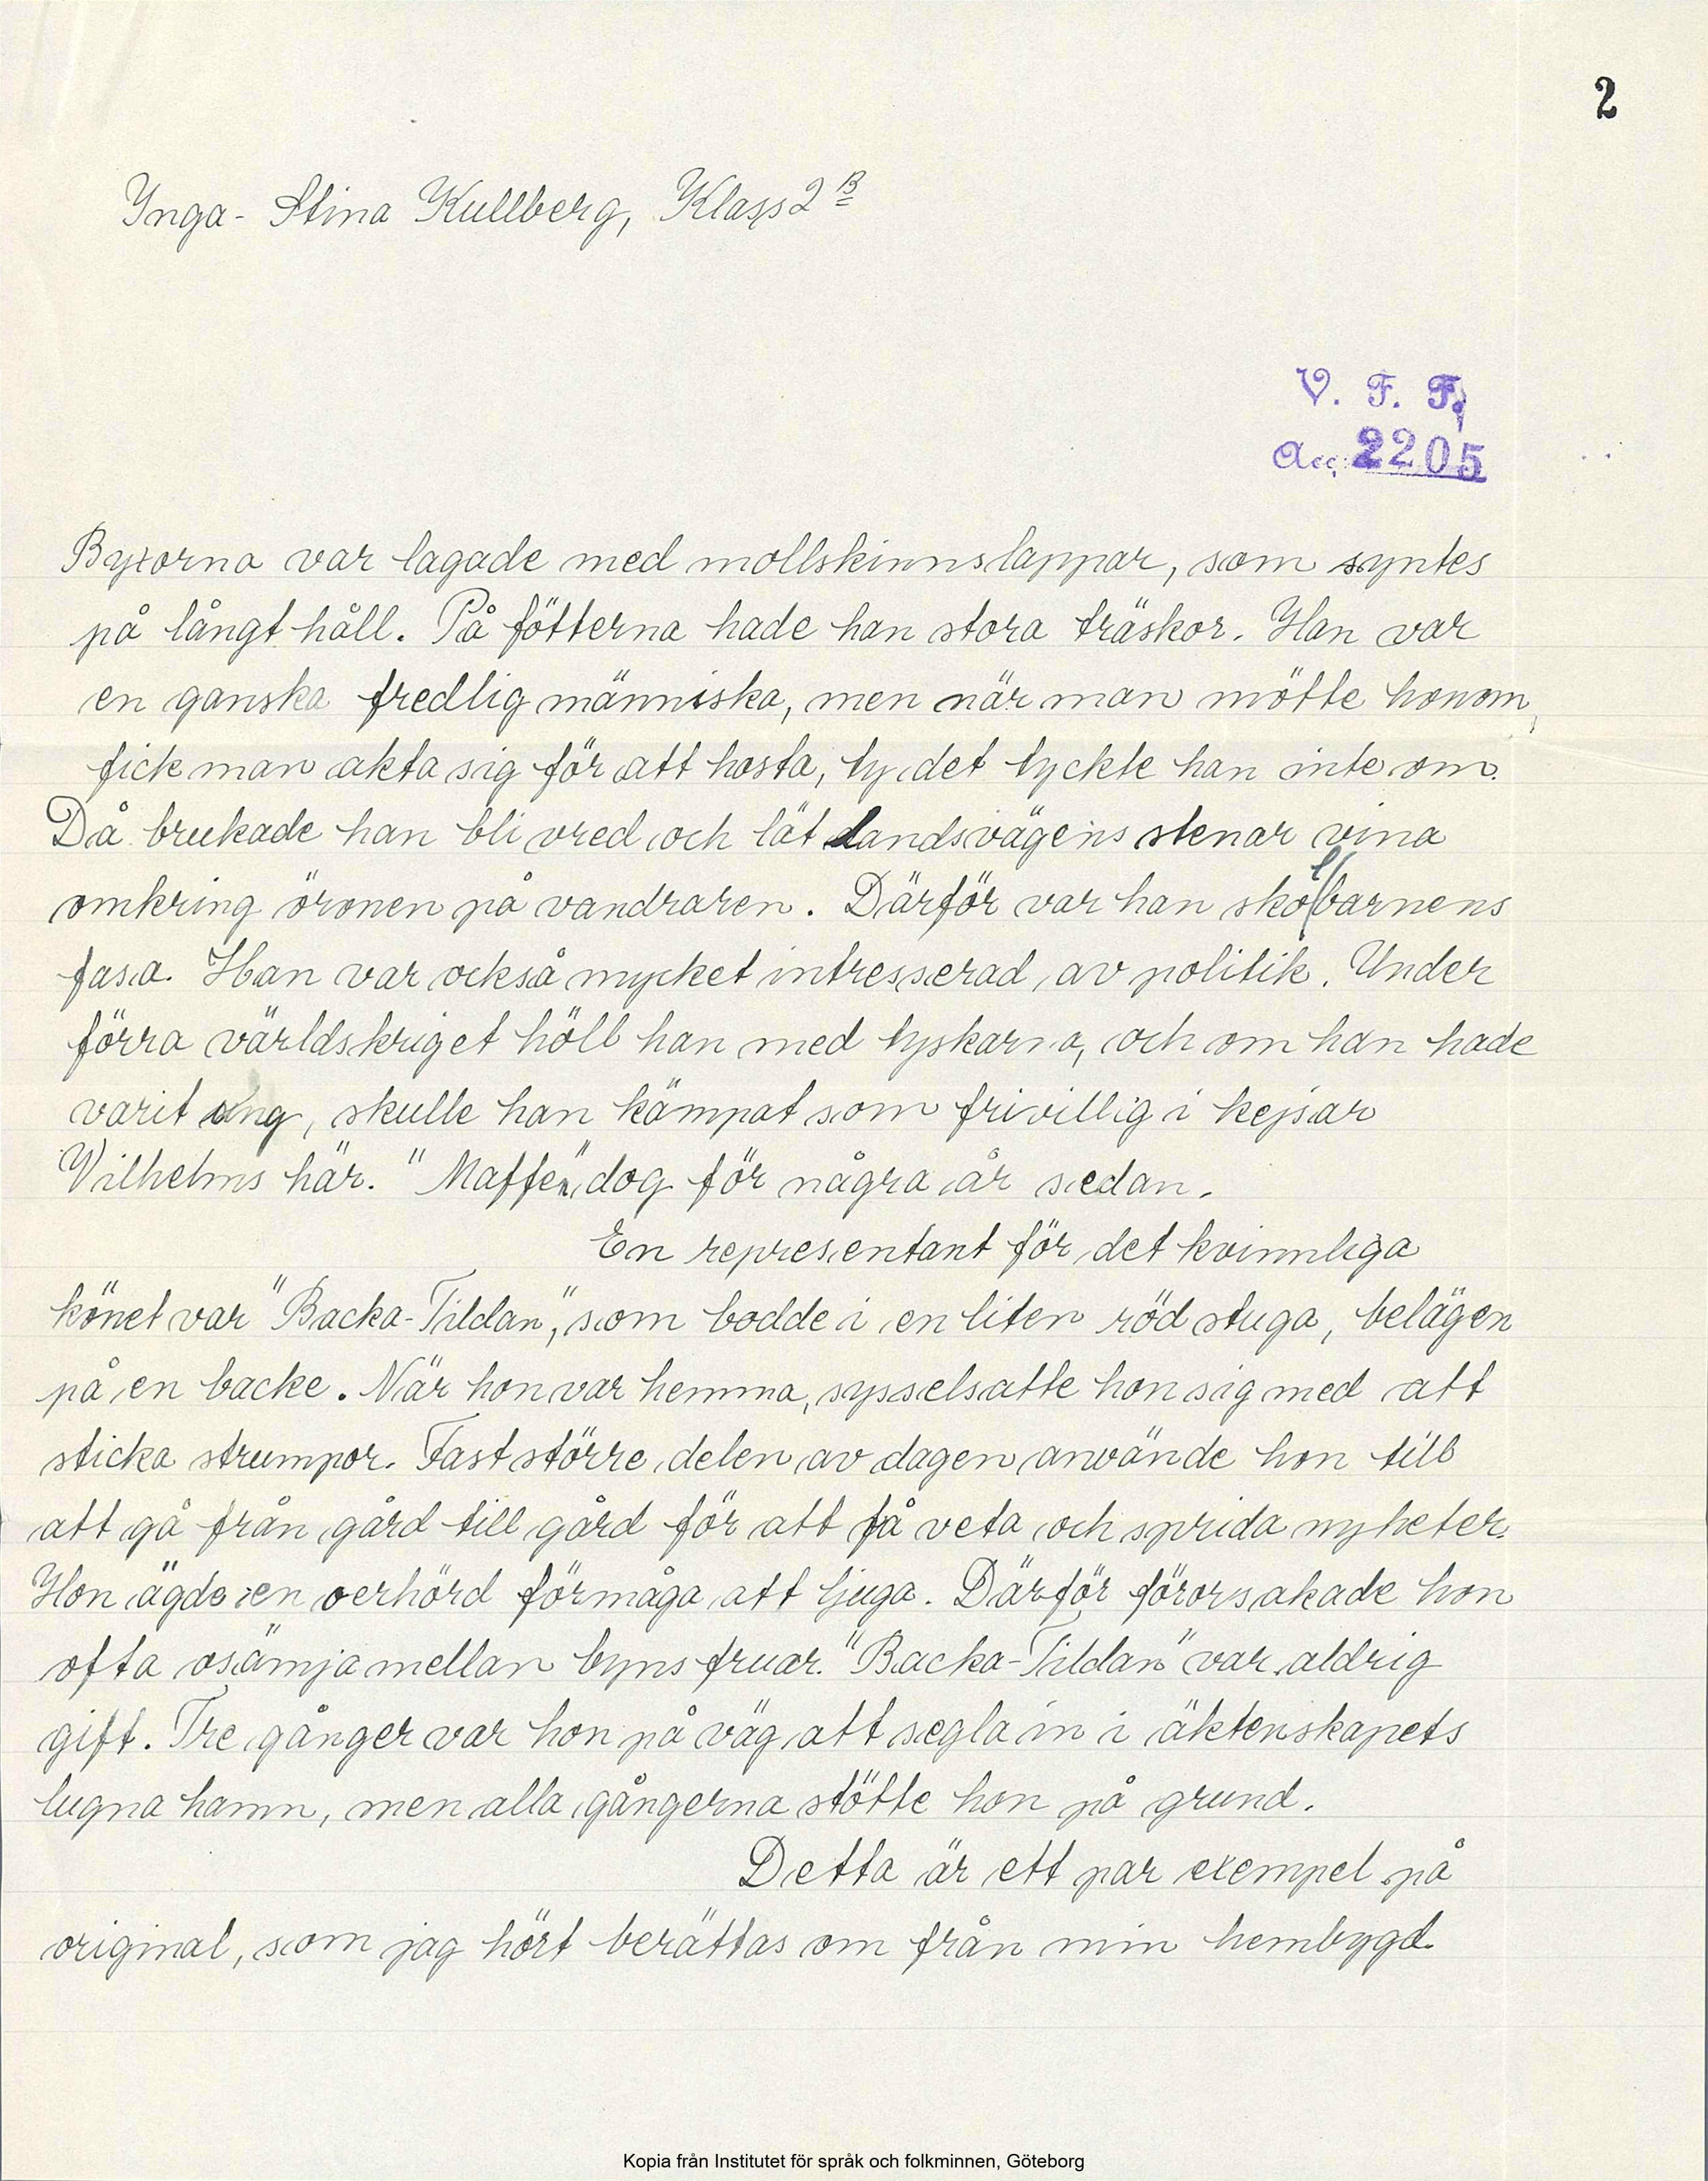 2
Ynga-Stina Kullberg, Klass 2 B
V. F. F.
Acc. 2205
Byxorna var lagade med mollskinnslappar, som syntes
på långt håll. På fötterna hade han stora träskor. Han var
en ganska fredlig människa, men när man mötte honom,
fick man akta sig för att hosta, ty det tyckte han inte om.
Då brukade han bli vred och lät landsvägens stenar vina
omkring öronen på vandraren. Därför var han skolbarnens
fasa. Han var också mycket intresserad av politik. Under
förra världskriget höll han med tyskarna, och om han hade
varit ung, skulle han kämpat som frivillig i kejsar
Vilhelms här. "Maffen" dog för några år sedan.
En representant för det kvinnliga
könet var "Backa-Tildan", som bodde i en liten röd stuga, belägen
på en backe. När hon var hemma, sysselsatte hon sig med att
sticka strumpor. Fast större delen av dagen använde hon till
att gå från gård till gård för att få veta och sprida nyheter.
Hon ägde en oerhörd förmåga att ljuga. Därför förorsakade hon
ofta osämja mellan byns fruar. "Backa-Tildan" var aldrig
gift. Tre gånger var hon på väg att segla in i äktenskapets
lugna hamn, men alla gångerna stötte hon på grund.
Detta är ett par exempel på
original, som jag hört berättas om från min hembygd.
Kopia från Institutet för språk och folkminnen, Göteborg